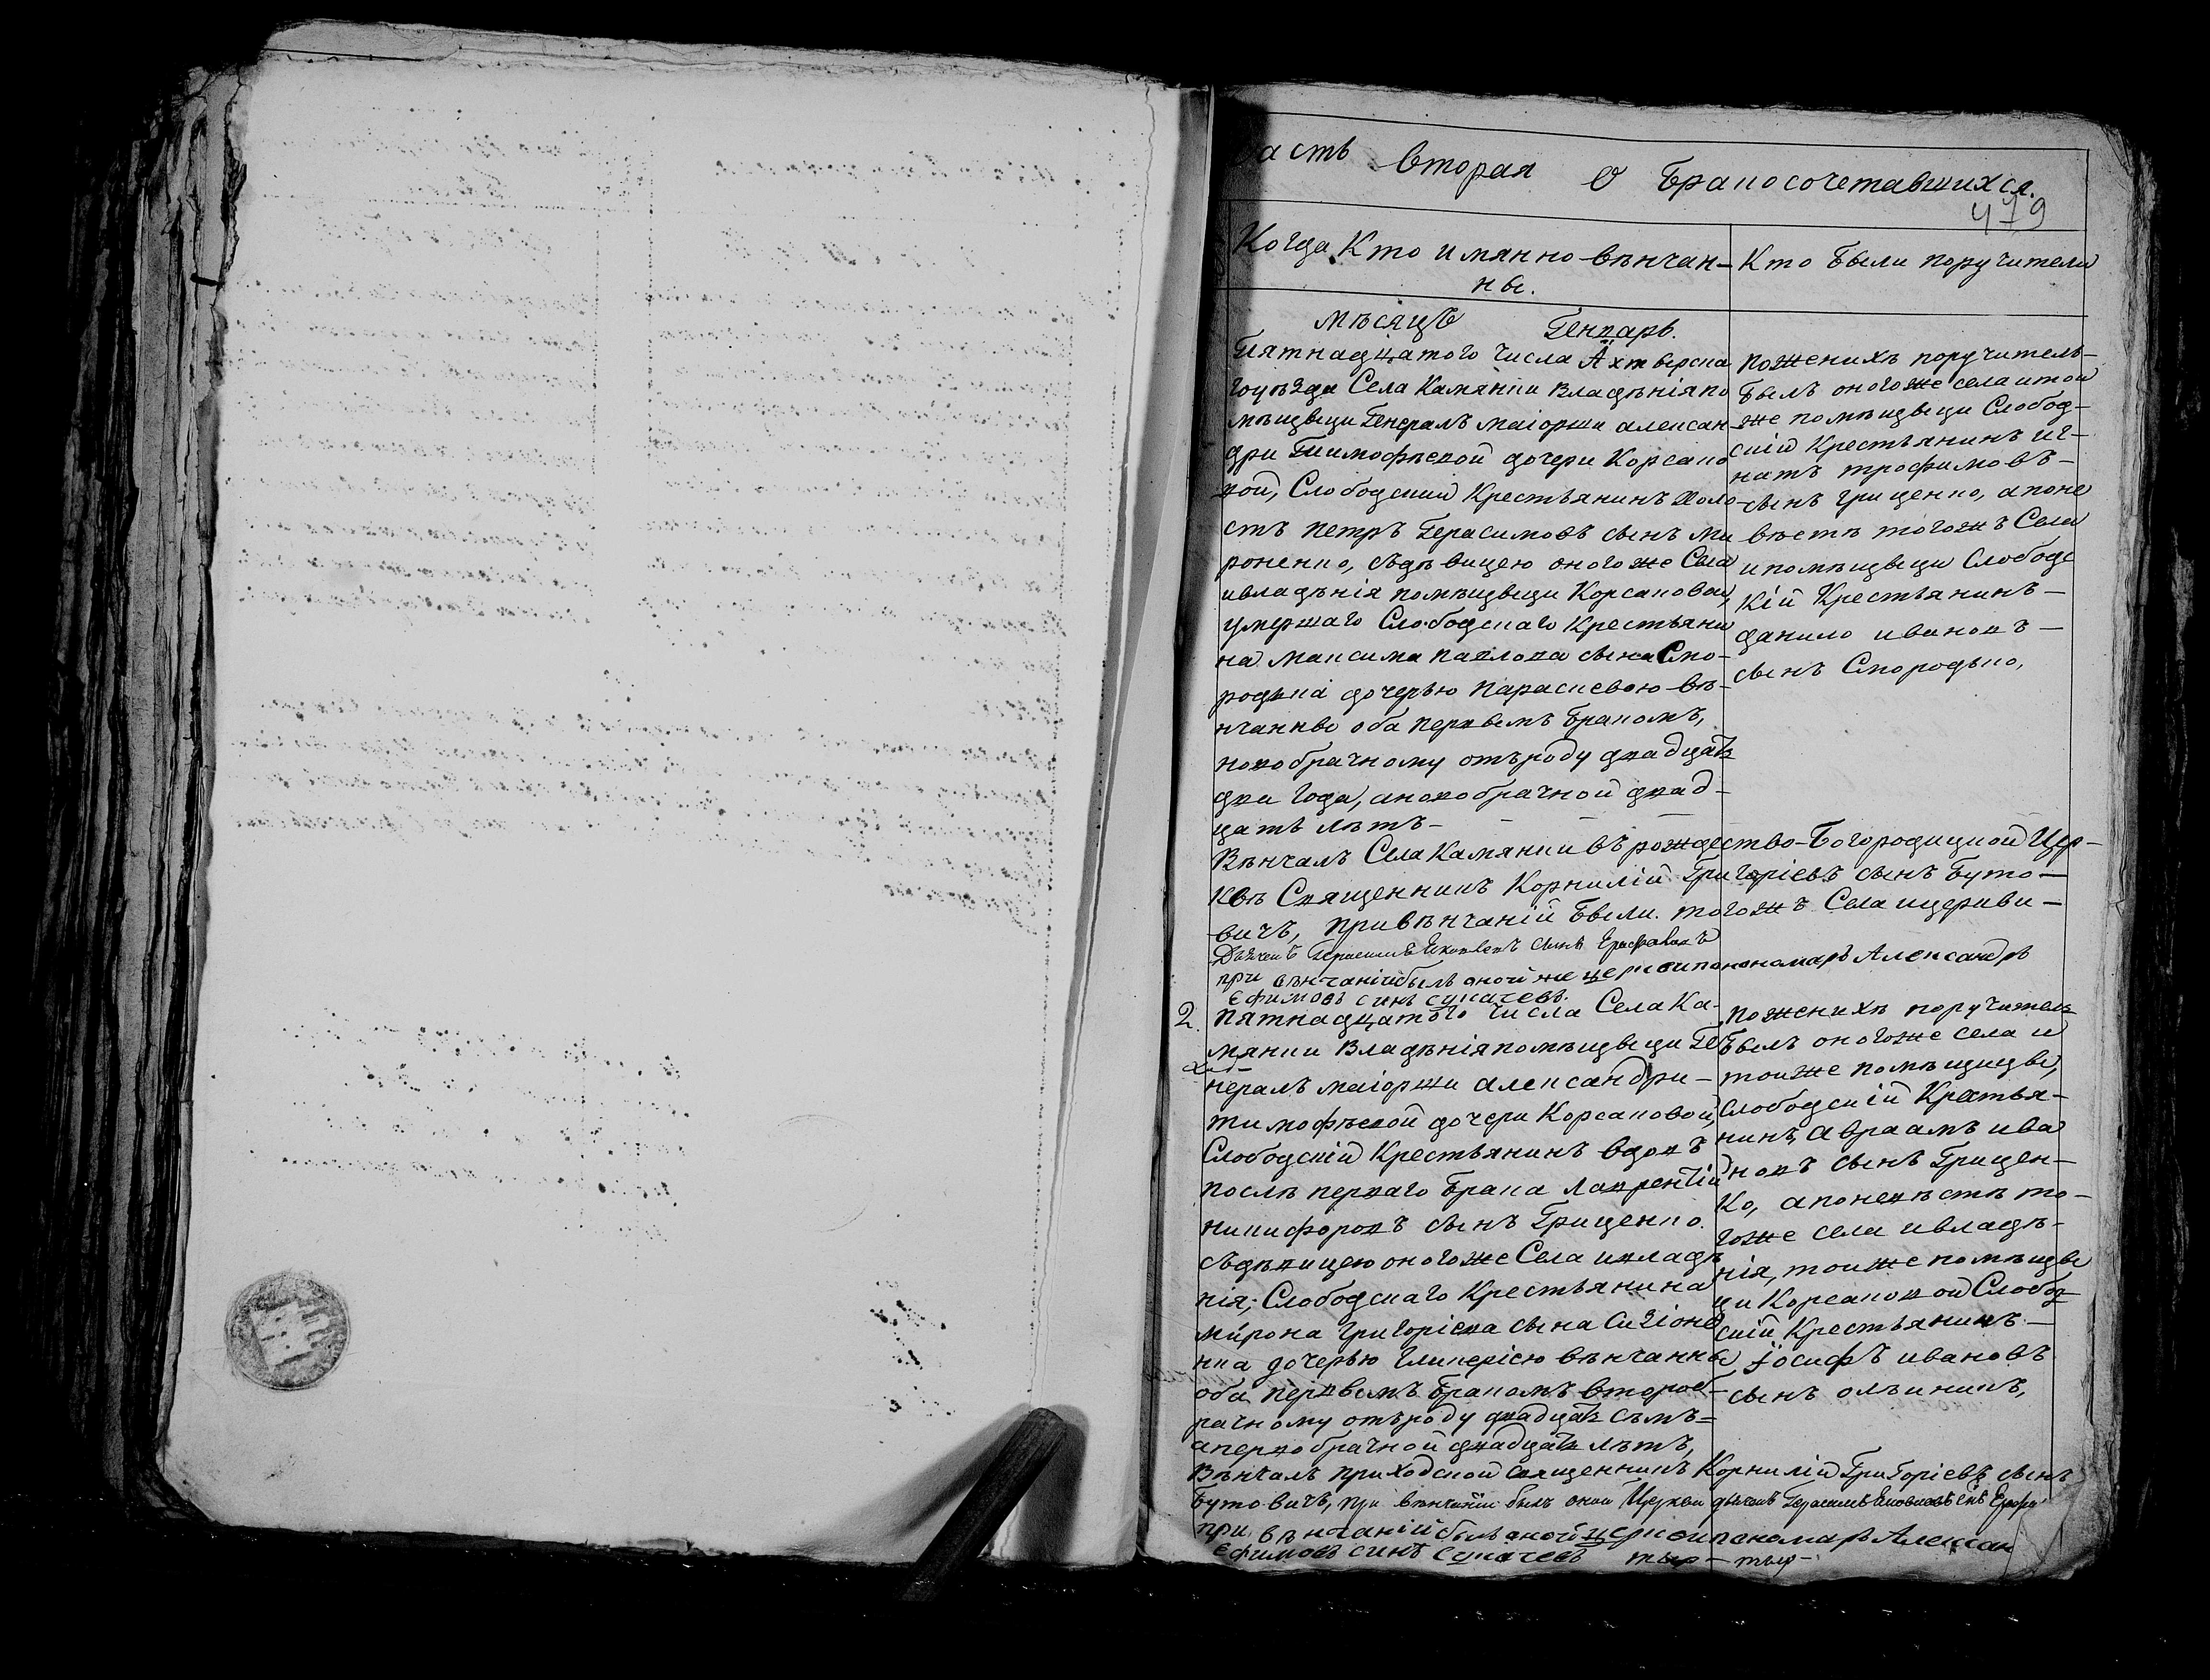 асть вторая о бракосочетавшихся.
479
Когда Кто имянно вѣнчан-
ны.
Кто были поручители
мѣсяцъ Генварь.
Пятнадцатого числа Ахтырска
гоуѣзда Села Камянки Владѣнія по
мѣщыци Генералъ маіорши алексан
дри Тимофѣевой дочери Корсако
вой, Слободский Крестьянинъ холо
стъ петръ Герасимовъ сынъ ми
роненко, съдѣвицею оногоже Села
ивладѣнія помѣщыци Корсаковой,
умершаго Слободскаго Крестьяни
на максима павлова сына Смо-
родкі дочерью параскевою вѣ-
нчанны оба первымъ бракомъ,
новобрачному отъроду двадцать
два года, ановобрачной двад-
цать лѣтъ-
поженихѣ поручитель-
былъ оногоже села итой
же помѣщыци Слобод-
скій Крестьянинъ иг-
натъ трофимовъ-
сынъ грищенко, апоне
вѣстѣ тогожъ Села
ипомѣщыци Слободс
кій Крестьянинъ-
данило ивановъ-
сынъ Смородько,
Вѣнчалъ Села Камянки въ рождество-Богородицкой Цер-
квѣ Священникъ Корнилій Григоріевъ сынъ Буто-
вичъ, привѣнчаній были тогожъ Села ицеркви-
Дьячокъ Герасимъ Яковлевъ сынъ
при вѣнчаніи былъ оной же церкви пономарь Александръ
Ефимовъ синъ сукачевъ.
2. пятнадцатого числа Села Ка-
мянки Владѣнія помѣщыци Ге
нералъ маіорши александри-
тимофѣевой дочери Корсаковой,
Слободскій Крестьянинъ вдовъ
послѣ перваго брака лаврентій
никифоровъ сынъ Грищенко
съдѣвицею оногоже Села ивладѣ
нія, Слободскаго Крестьянина
мирона григоріева сына
нка дочерью гликеріею вѣнчанны
оба первымъ бракомъ второб-
рачному отъроду двадцать съмъ=
апервобрачной двадцать лѣтъ,
поженихѣ поручитель
былъ оногоже села и
тоиже помѣщицы,
Слободскій Крестья-
нинъ, авраамъ ива
новъ сынъ Грищен-
ко, апоневѣстѣ то-
гоже села ивладѣ-
нія, тоиже помѣщы
ци Корсаковой Слобод
скій Крестьянинъ-
іосифъ ивановъ
сынъ олѣникъ,
Вѣнчалъ приходской священникъ Корнилій Григоріевъ сынъ
Бутовичъ, при вѣнчаніи былъ оной Церкви дьячокъ Герасимъ Яковлевъ
при вѣнчаніи былъ оной церкви пономарь Алексан
Ефимовъ синъ сукачевъ